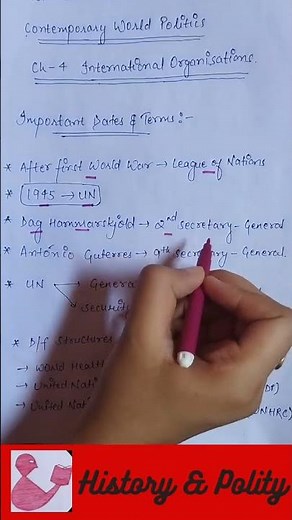 Contemporary World Politics
Ch-4 International Organisations.
Important Dates & Terms:-
* After first World War → League of Nations
* 1945 → UN
* Dag Hammarskjold → 2nd Secretary-General
* António Guterres → 9th Secretary-General.
* UN → General
→ Security
* D/f Structures
→ World Health
→ United Nati
→ United Nat
NHRC)
History & Polity